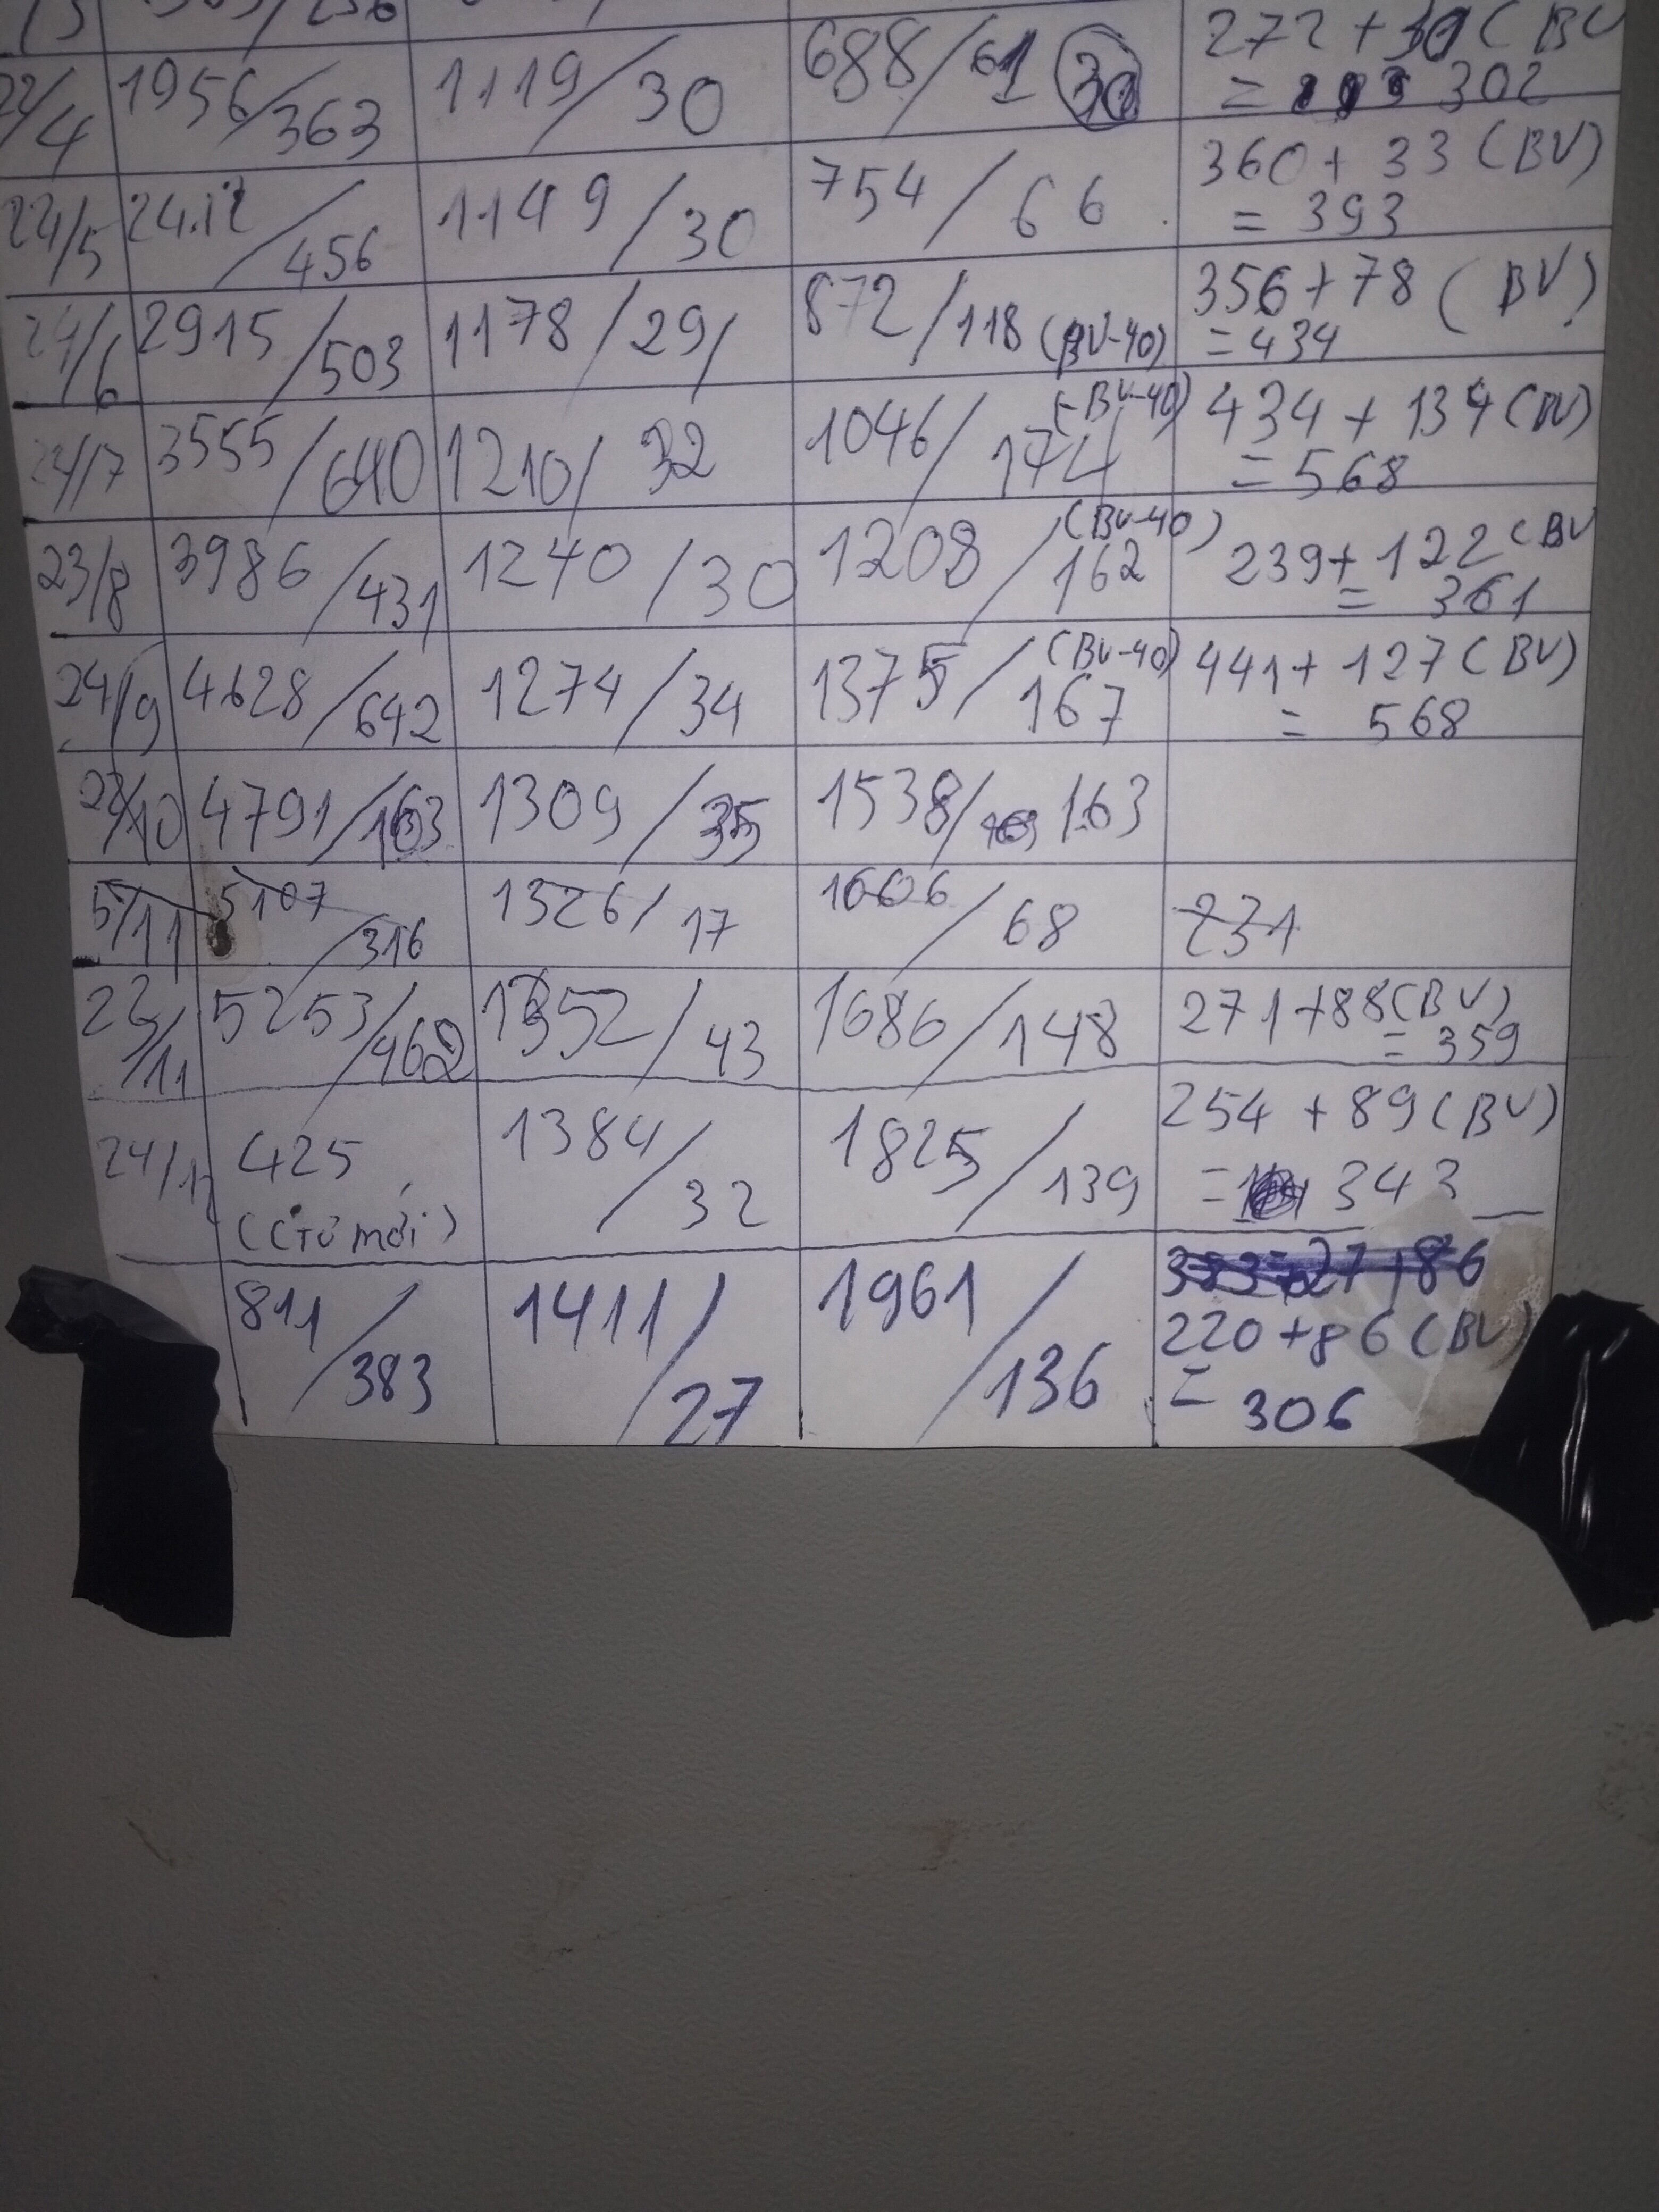 22/4 1956/363 1119/30 688/61 30 272 + 30 (BV
= 302
24/5 2412/456 1149/30 754/66 360 + 33 (BV)
= 393
24/6 2915/503 1178/29/ 872/118 (BV-40) 356 + 78 (BV)
= 434
24/7 3555/640 1210/32 1046/174 (-BV-40) 434 + 134 (BV)
= 568
23/8 3986/431 1240/30 1208/162 (BV-40) 239 + 122 (BV
= 361
24/9 4628/642 1274/34 1375/167 (BV-40) 441 + 127 (BV)
= 568
23/10 4791/163 1309/35 1538/163
5/11 5107/316 1326/17 1606/68 231
23/11 5253/462 1352/43 1686/148 271 + 88 (BV)
= 359
24/12 425 1384/32 1825/139 254 + 89 (BV)
(CTơ mới) = 343
811/383 1411/27 1961/136 220 + 86 (BV)
=
306